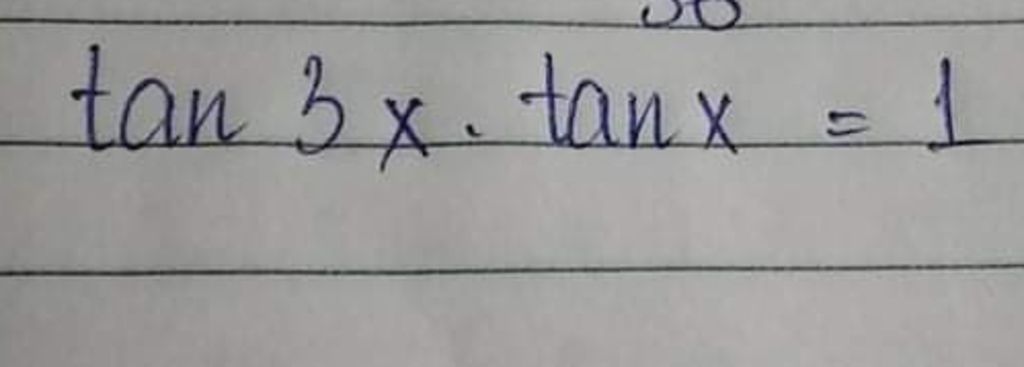 tan 3x . tan x = 1